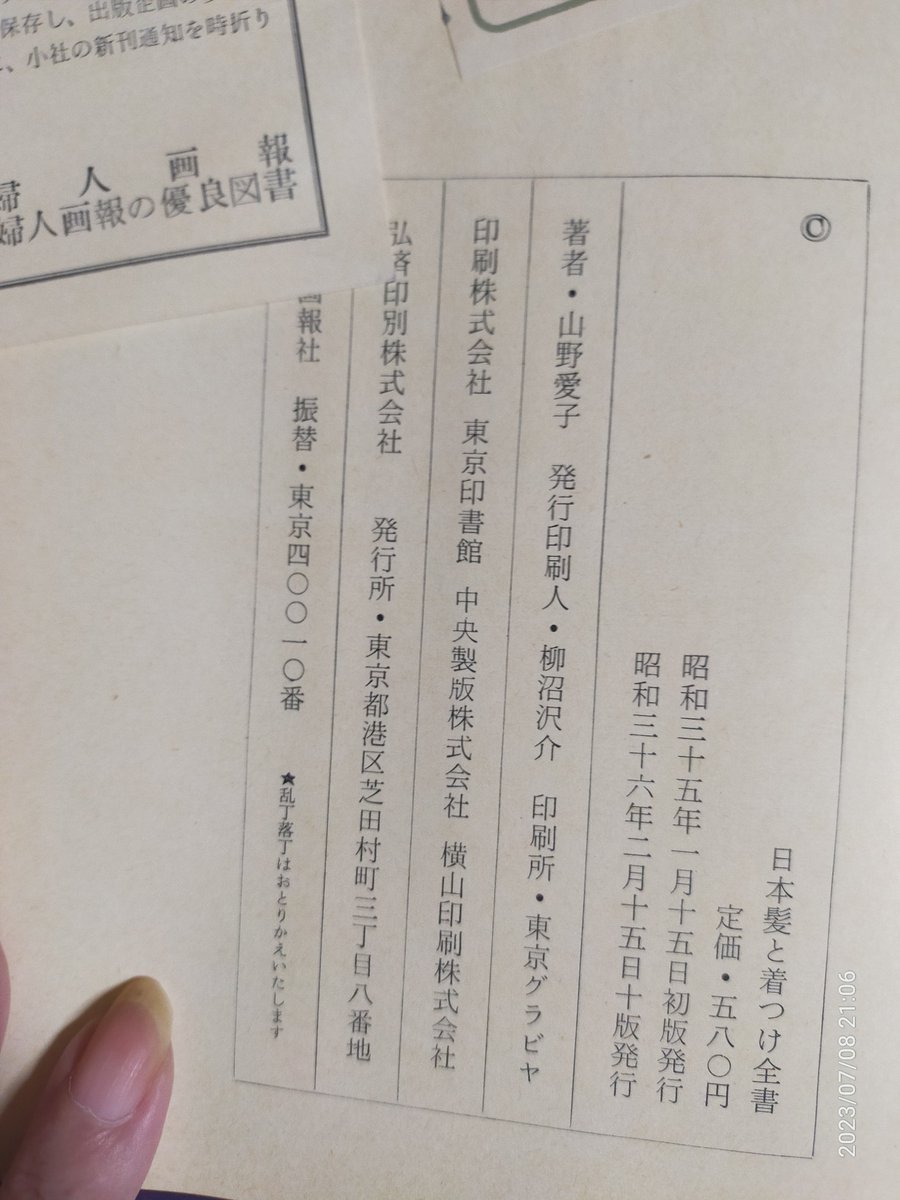 保存し、出版企画の
、小社の新刊通知を時折り
婦人画報
婦人画報の優良図書
©
日本髪と着つけ全書
定価・五八〇円
昭和三十五年一月十五日初版発行
昭和三十六年二月十五日十版発行
著者・山野愛子 発行印刷人・柳沼沢介 印刷所・東京グラビヤ
印刷株式会社 東京印書館 中央製版株式会社 横山印刷株式会社
弘済印別株式会社 発行所・東京都港区芝田村町三丁目八番地
画報社 振替・東京四〇〇一〇番 ★乱丁落丁はおとりかえいたします
2023/07/08 21:06